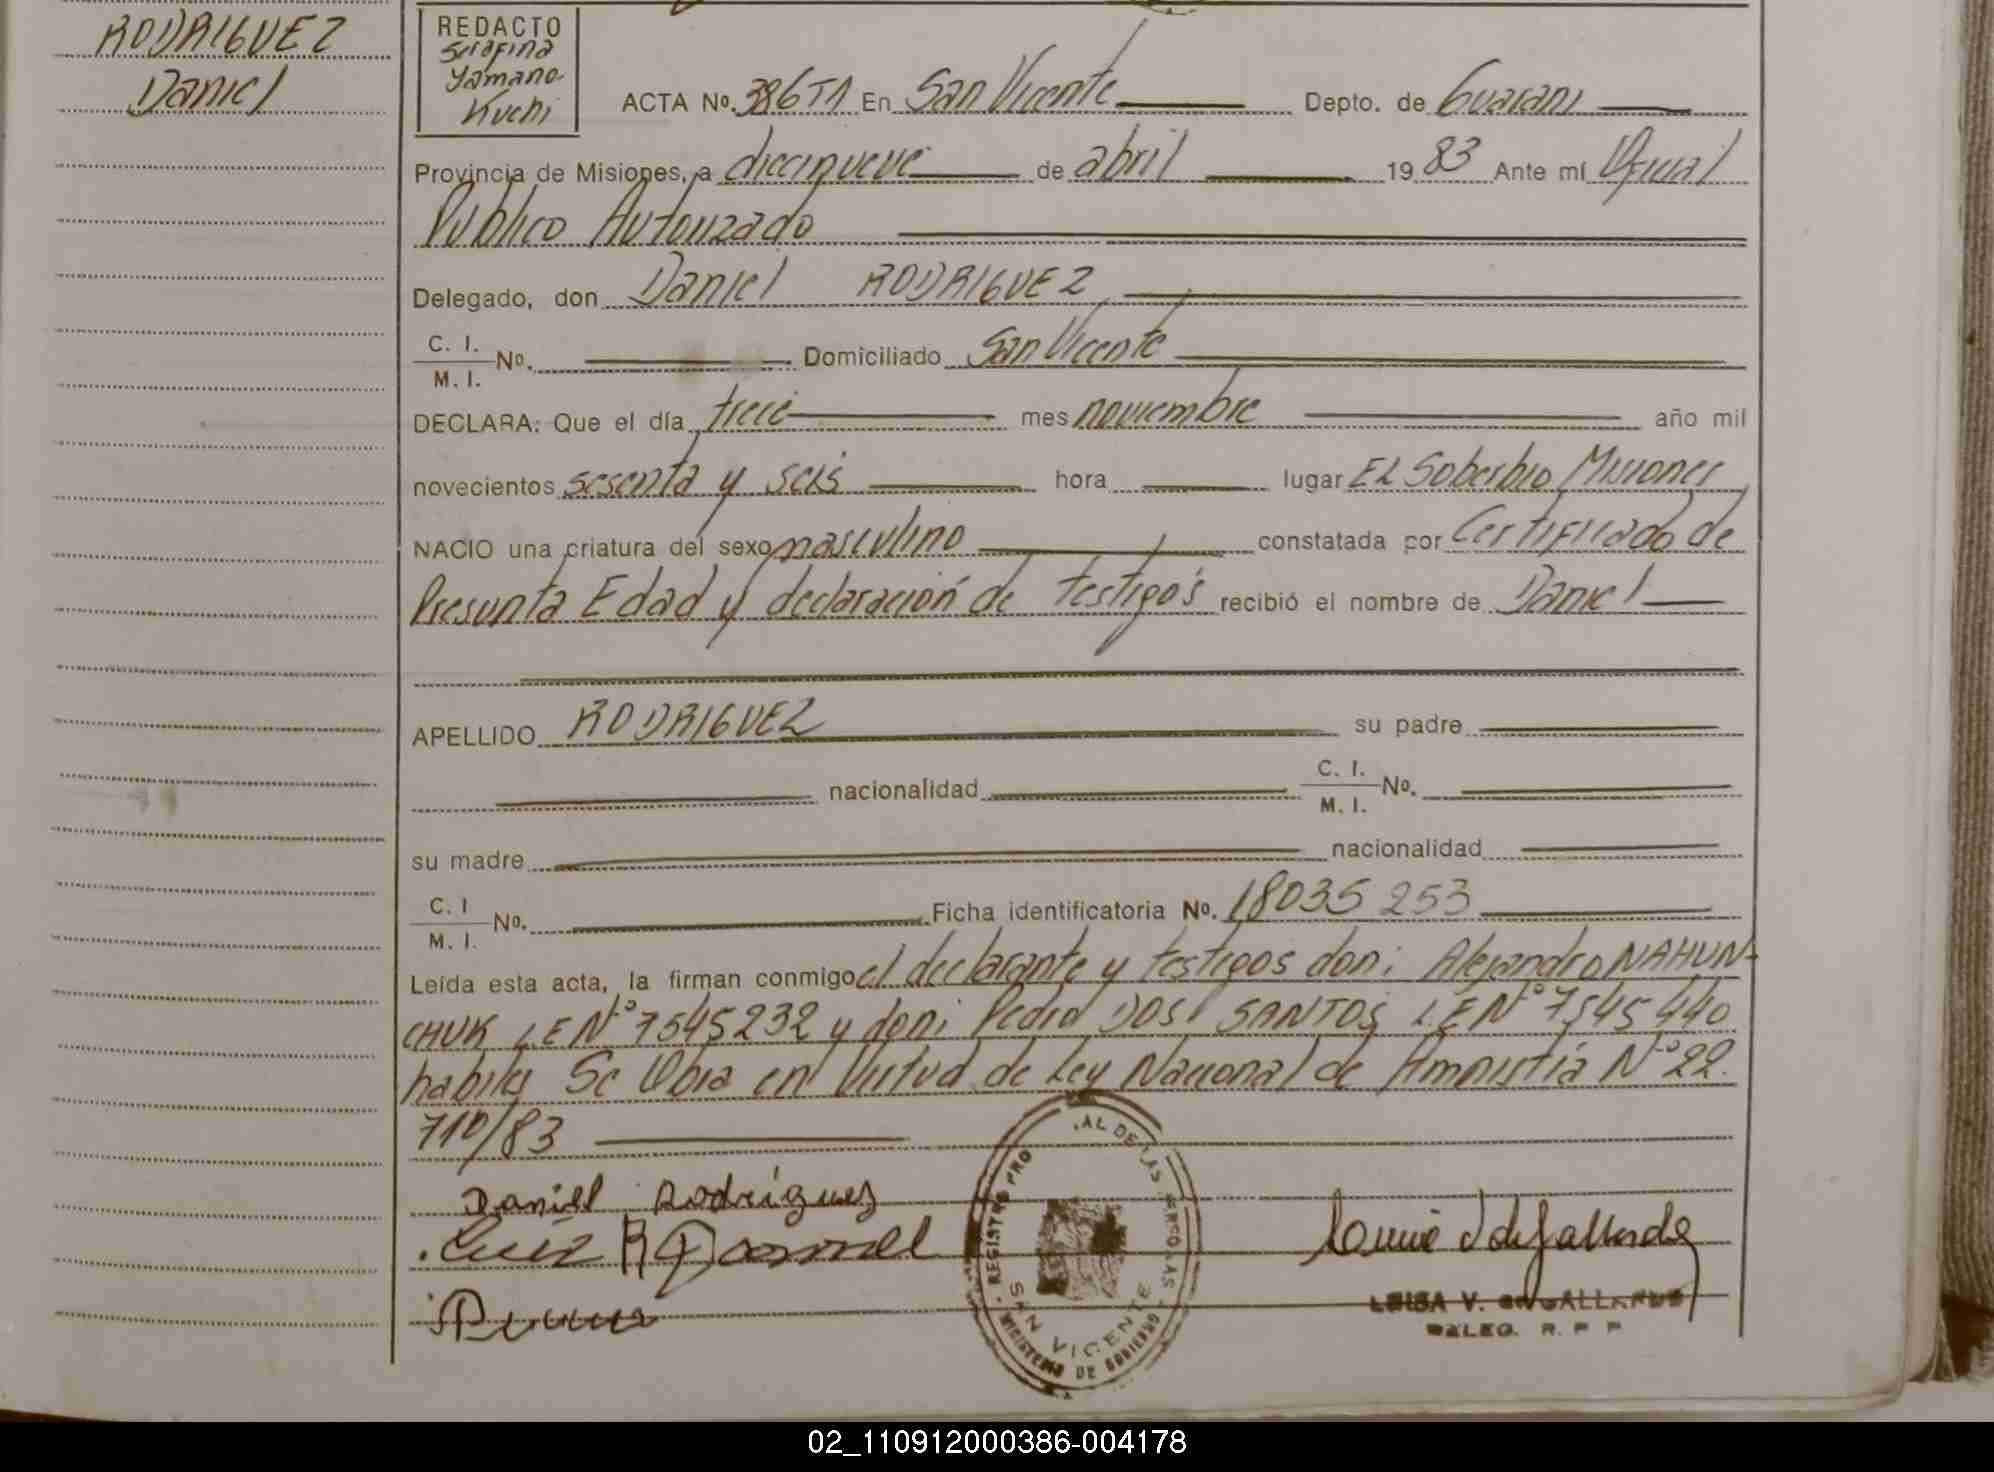 RODRIGUEZ
Daniel
REDACTO
Serafina
Yamano
Kuchi
ACTA No. 386T1 En San Vicente Depto. de Guarani
Provincia de Misiones, a diecinueve de abril 1983 Ante mí Oficial
Público Autorizado
Delegado, don Daniel RODRIGUEZ
C. I.
M. I. No. Domiciliado San Vicente
DECLARA: Que el día trece mes noviembre año mil
novecientos sesenta y seis hora lugar EL Soberbio Misiones
NACIO una criatura del sexo masculino constatada por Certificado de
Presunta Edad y declaración de testigos recibió el nombre de Daniel
APELLIDO RODRIGUEZ su padre
nacionalidad C. I.
M. I. No.
su madre nacionalidad
C. I
M. I. No. Ficha identificatoria No. 18035253
Leída esta acta, la firman conmigo el declarante y testigos don: Alejandro NAHUN-
CHUK LE Nº 7545232 y don: Pedro DOS SANTOS LE Nº 7545440
habiles Se Obra en Virtud de Ley Nacional de Amnistía Nº 22.
710/83
Daniel Rodriguez
REGISTRO PRO AL DE LAS PERSONAS
SAN VICENTE
MINISTERIO DE GOBIERNO
LUISA V. de GALLARDO
DELEG. R. P. P
02_110912000386-004178